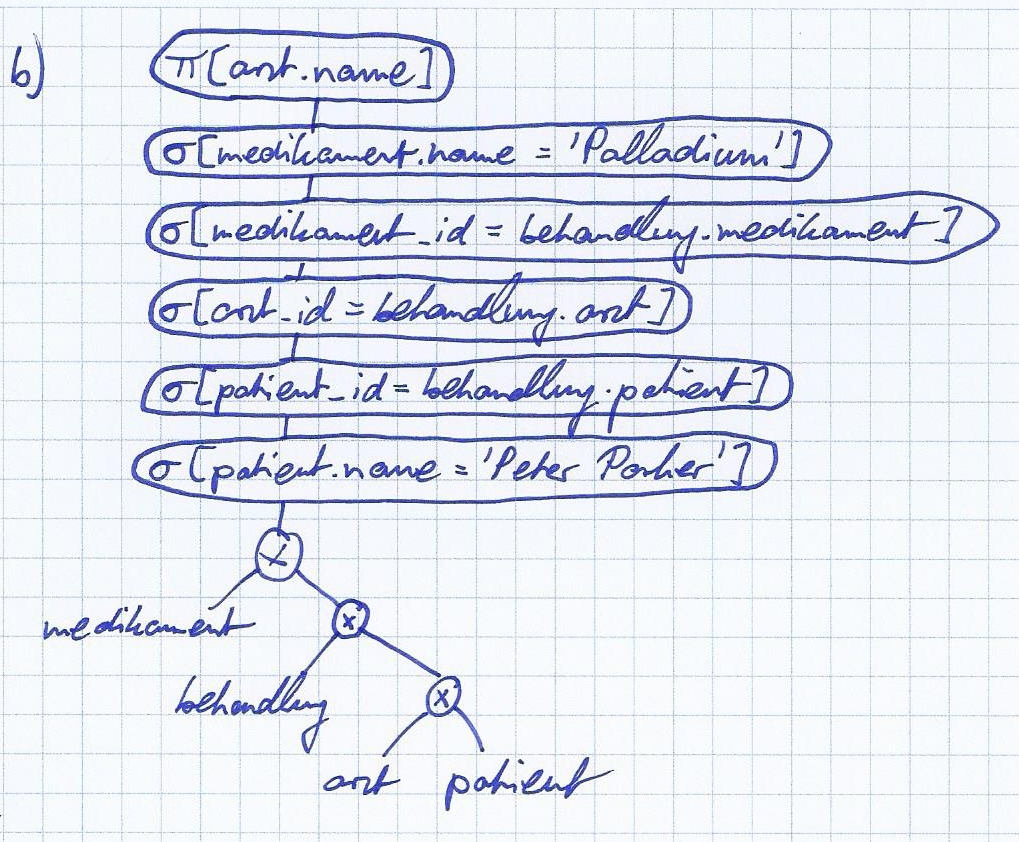 b)
π[arzt.name]
σ[medikament.name = 'Palladium']
σ[medikament_id = behandlung.medikament]
σ[arzt_id = behandlung.arzt]
σ[patient_id = behandlung.patient]
σ[patient.name = 'Peter Parker']
x
medikament x
behandlung x
arzt patient